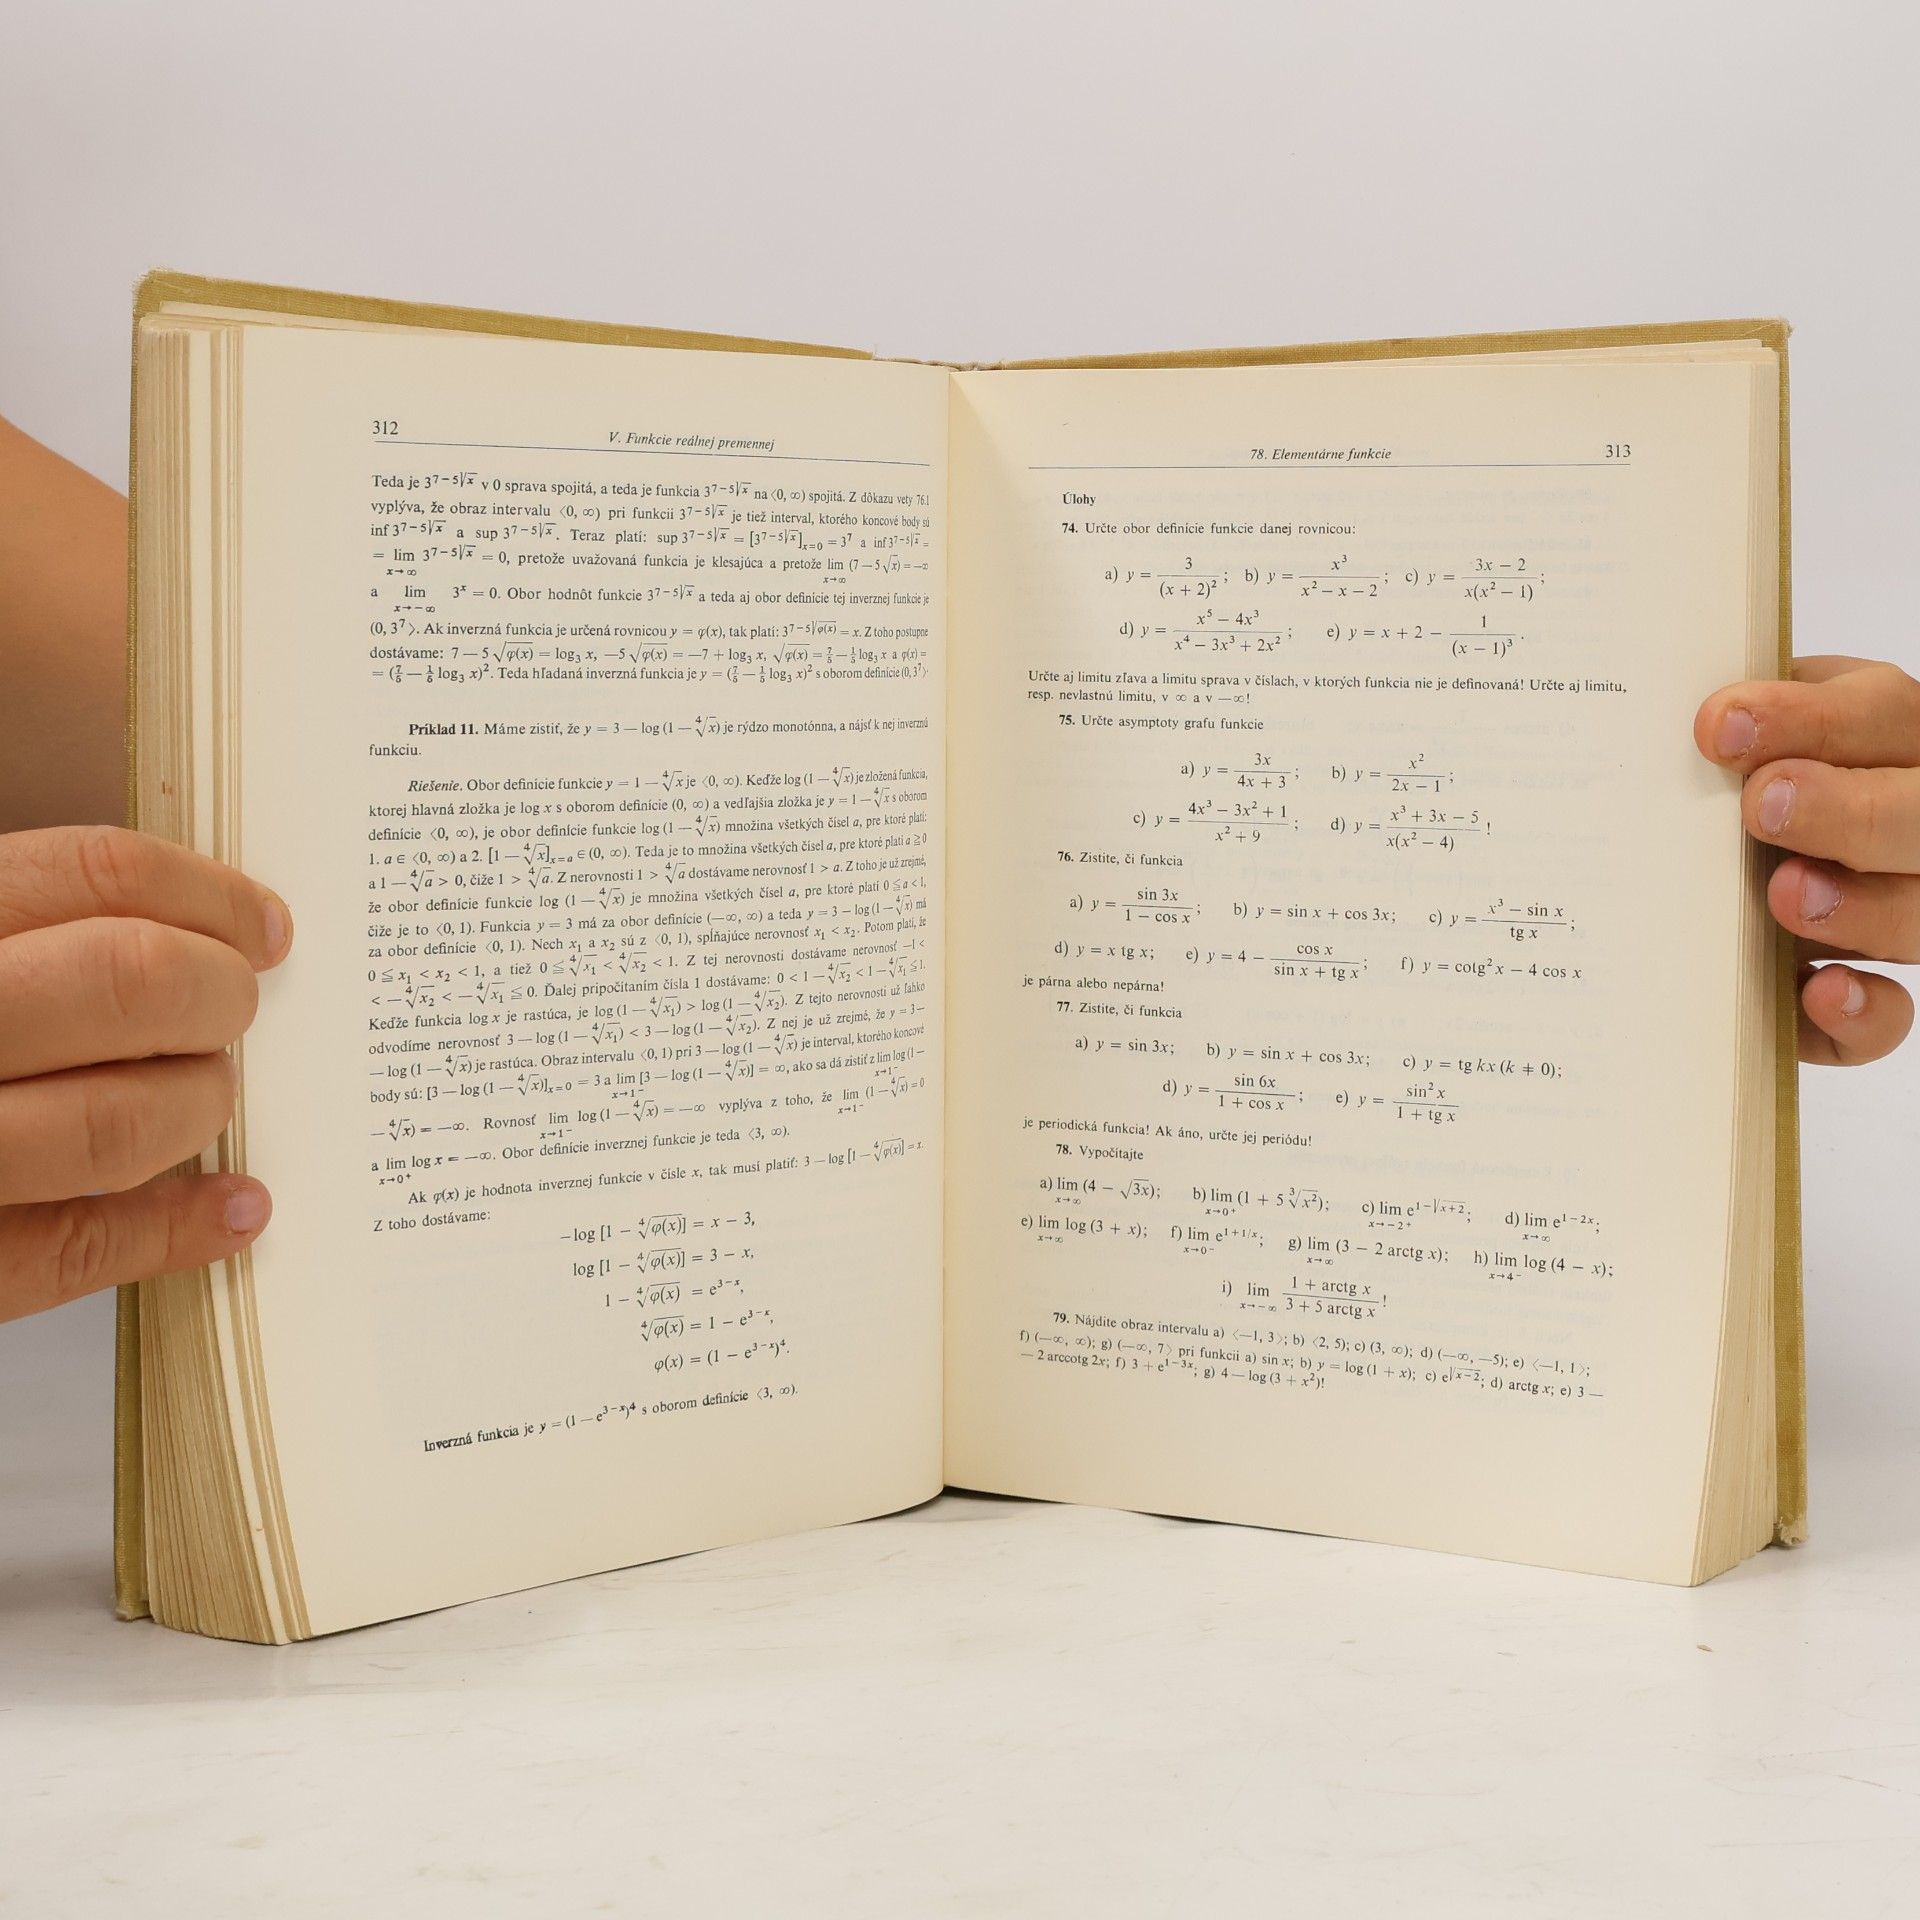 312
V. Funkcie reálnej premennej
Teda je 3^{7−5√x} v 0 sprava spojitá, a teda je funkcia 3^{7−5√x} na ⟨0, ∞) spojitá. Z dôkazu vety 76.1
vyplýva, že obraz intervalu ⟨0, ∞) pri funkcii 3^{7−5√x} je tiež interval, ktorého koncové body sú
inf 3^{7−5√x} a sup 3^{7−5√x}. Teraz platí: sup 3^{7−5√x} = [3^{7−5√x}]_{x=0} = 3^7 a inf 3^{7−5√x} =
= lim_{x→∞} 3^{7−5√x} = 0, pretože uvažovaná funkcia je klesajúca a pretože lim_{x→∞} (7 − 5√x) = −∞
a lim_{x→−∞} 3^x = 0. Obor hodnôt funkcie 3^{7−5√x} a teda aj obor definície tej inverznej funkcie je
(0, 3^7⟩. Ak inverzná funkcia je určená rovnicou y = φ(x), tak platí: 3^{7−5√φ(x)} = x. Z toho postupne
dostávame: 7 − 5√φ(x) = log₃ x, −5√φ(x) = −7 + log₃ x, √φ(x) = 7/5 − 1/5 log₃ x a φ(x) =
= (7/5 − 1/5 log₃ x)². Teda hľadaná inverzná funkcia je y = (7/5 − 1/5 log₃ x)² s oborom definície (0, 3^7⟩.
Príklad 11. Máme zistiť, že y = 3 − log (1 − ∜x) je rýdzo monotónna, a nájsť k nej inverznú
funkciu.
Riešenie. Obor definície funkcie y = 1 − ∜x je ⟨0, ∞). Keďže log (1 − ∜x) je zložená funkcia,
ktorej hlavná zložka je log x s oborom definície (0, ∞) a vedľajšia zložka je y = 1 − ∜x s oborom
definície ⟨0, ∞), je obor definície funkcie log (1 − ∜x) množina všetkých čísel a, pre ktoré platí:
1. a ∈ ⟨0, ∞) a 2. [1 − ∜x]_{x=a} ∈ (0, ∞). Teda je to množina všetkých čísel a, pre ktoré platí a ≧ 0
a 1 − ∜a > 0, čiže 1 > ∜a. Z nerovnosti 1 > ∜a dostávame nerovnosť 1 > a. Z toho je už zrejmé,
že obor definície funkcie log (1 − ∜x) je množina všetkých čísel a, pre ktoré platí 0 ≦ a < 1,
čiže je to ⟨0, 1). Funkcia y = 3 má za obor definície (−∞, ∞) a teda y = 3 − log (1 − ∜x) má
za obor definície ⟨0, 1). Nech x₁ a x₂ sú z ⟨0, 1), spĺňajúce nerovnosť x₁ < x₂. Potom platí, že
0 ≦ x₁ < x₂ < 1, a tiež 0 ≦ ∜x₁ < ∜x₂ < 1. Z tej nerovnosti dostávame nerovnosť −1 <
< −∜x₂ < −∜x₁ ≦ 0. Ďalej pripočítaním čísla 1 dostávame: 0 < 1 − ∜x₂ < 1 − ∜x₁ ≦ 1.
Keďže funkcia log x je rastúca, je log (1 − ∜x₁) > log (1 − ∜x₂). Z tejto nerovnosti už ľahko
odvodíme nerovnosť 3 − log (1 − ∜x₁) < 3 − log (1 − ∜x₂). Z nej je už zrejmé, že y = 3 −
− log (1 − ∜x) je rastúca. Obraz intervalu ⟨0, 1) pri 3 − log (1 − ∜x) je interval, ktorého koncové
body sú: [3 − log (1 − ∜x)]_{x=0} = 3 a lim_{x→1⁻} [3 − log (1 − ∜x)] = ∞, ako sa dá zistiť z lim_{x→1⁻} log (1 −
− ∜x) = −∞. Rovnosť lim_{x→1⁻} log (1 − ∜x) = −∞ vyplýva z toho, že lim_{x→1⁻} (1 − ∜x) = 0
a lim_{x→0⁺} log x = −∞. Obor definície inverznej funkcie je teda ⟨3, ∞).
Ak φ(x) je hodnota inverznej funkcie v čísle x, tak musí platiť: 3 − log [1 − ∜φ(x)] = x.
Z toho dostávame:
−log [1 − ∜φ(x)] = x − 3,
log [1 − ∜φ(x)] = 3 − x,
1 − ∜φ(x) = e^{3−x},
∜φ(x) = 1 − e^{3−x},
φ(x) = (1 − e^{3−x})⁴.
Inverzná funkcia je y = (1 − e^{3−x})⁴ s oborom definície ⟨3, ∞).
78. Elementárne funkcie
313
Úlohy
74. Určte obor definície funkcie danej rovnicou:
a) y = 3/(x + 2)²; b) y = x³/(x² − x − 2); c) y = (3x − 2)/(x(x² − 1));
d) y = (x⁵ − 4x³)/(x⁴ − 3x³ + 2x²); e) y = x + 2 − 1/(x − 1)³.
Určte aj limitu zľava a limitu sprava v číslach, v ktorých funkcia nie je definovaná! Určte aj limitu,
resp. nevlastnú limitu, v ∞ a v −∞!
75. Určte asymptoty grafu funkcie
a) y = 3x/(4x + 3); b) y = x²/(2x − 1);
c) y = (4x³ − 3x² + 1)/(x² + 9); d) y = (x³ + 3x − 5)/(x(x² − 4))!
76. Zistite, či funkcia
a) y = sin 3x/(1 − cos x); b) y = sin x + cos 3x; c) y = (x³ − sin x)/tg x;
d) y = x tg x; e) y = 4 − cos x/(sin x + tg x); f) y = cotg² x − 4 cos x
je párna alebo nepárna!
77. Zistite, či funkcia
a) y = sin 3x; b) y = sin x + cos 3x; c) y = tg kx (k ≠ 0);
d) y = sin 6x/(1 + cos x); e) y = sin² x/(1 + tg x)
je periodická funkcia! Ak áno, určte jej periódu!
78. Vypočítajte
a) lim_{x→∞} (4 − √3x); b) lim_{x→0⁺} (1 + 5 ∛x²); c) lim_{x→−2⁺} e^{1−√x+2}; d) lim_{x→∞} e^{1−2x};
e) lim_{x→∞} log (3 + x); f) lim_{x→0⁻} e^{1+1/x}; g) lim_{x→∞} (3 − 2 arctg x); h) lim_{x→4⁻} log (4 − x);
i) lim_{x→−∞} (1 + arctg x)/(3 + 5 arctg x)!
79. Nájdite obraz intervalu a) ⟨−1, 3⟩; b) ⟨2, 5); c) (3, ∞); d) (−∞, −5); e) ⟨−1, 1⟩;
f) (−∞, ∞); g) (−∞, 7⟩ pri funkcii a) sin x; b) y = log (1 + x); c) e^{√x−2}; d) arctg x; e) 3 −
− 2 arccotg 2x; f) 3 + e^{1−3x}; g) 4 − log (3 + x²)!